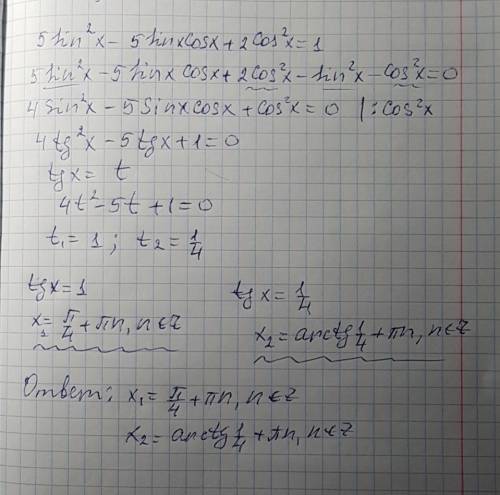 5sin²x - 5sinxcosx + 2cos²x = 1
5sin²x - 5sinx cosx + 2cos²x - sin²x - cos²x = 0
4sin²x - 5sinxcosx + cos²x = 0 | : cos²x
4tg²x - 5tgx + 1 = 0
tgx = t
4t² - 5t + 1 = 0
t₁ = 1 ; t₂ = 1/4
tgx = 1
x₁ = π/4 + πn, n ∈ Z
tgx = 1/4
x₂ = arctg 1/4 + πn, n ∈ Z
Ответ: x₁ = π/4 + πn, n ∈ Z
x₂ = arctg 1/4 + πn, n ∈ Z